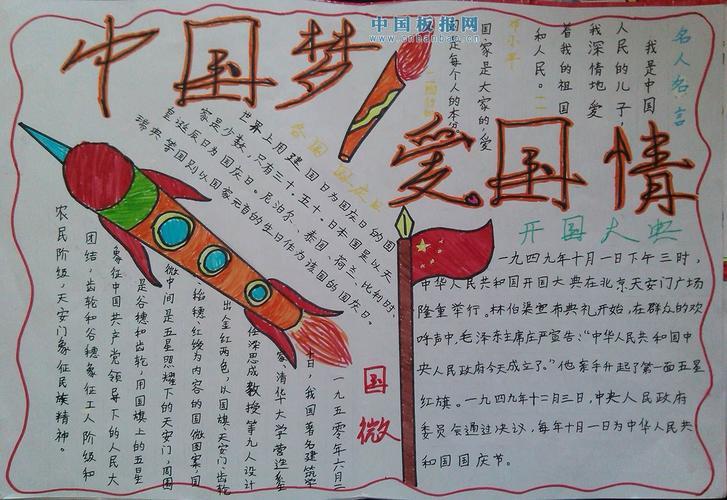 中国板报网
www.cnbanbao.cn
中国梦
爱国情
名人名言
我是中国
人民的儿子,
我深情地爱
着我的祖国
和人民。
邓小平
国家是大家的,爱
是每个人的本
各国国庆日
世界上用建国日为国庆日的国
家是少数,只有三十.五十。日本国是以天
皇诞辰日为国庆日。尼泊尔、泰国、荷兰、比利时、
瑞典、等国别以国家元首的生日作为该国的国庆日。
开国大典
一九四九年十月一日下午三时,
中华人民共和国开国大典在北京天安门广场
隆重举行。林伯渠宣布典礼开始,在群众的欢
呼声中,毛泽东主席庄严宣告:“中华人民共和国中
央人民政府今天成立了。”他亲手升起了第一面五星
红旗。一九四九年十二月三日,中央人民政府
委员会通过决议,每年十月一日为中华人民共
和国国庆节。
国微
一九五零年六月二
十日,我国著名建筑学
家、清华大学营造系
任深思成教授等九人设计
出金红两色,以国旗,天安门,齿轮
稻穗、红绶为内容的国微图案,国
微中间是五星照耀下的天安门,周围
是谷穗和齿轮,用国旗上的五星
象征中国共产党领导下的人民大
团结,齿轮和谷穗象征工人阶级和
农民阶级,天安门象征民族精神。